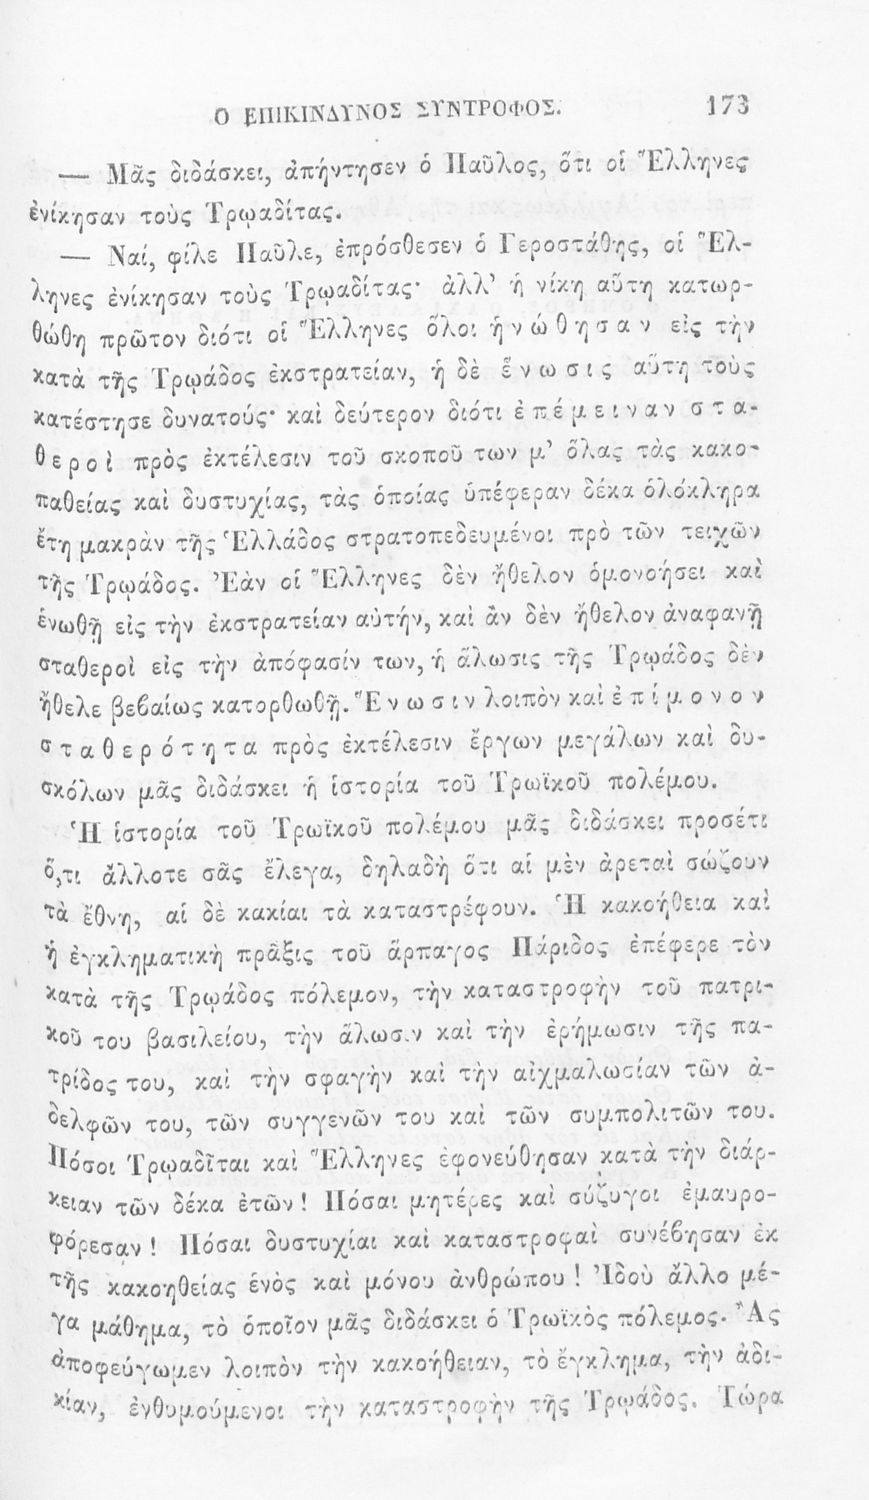 Ο ΕΠΙΚΙΝΔΥΝΟΣ ΣΥΝΤΡΟΦΟΣ. 173
— Μᾶς διδάσκει, ἀπήντησεν ὁ Παῦλος, ὅτι οἱ Ἕλληνες
ἐνίκησαν τοὺς Τρῳαδίτας.
— Ναί, φίλε Παῦλε, ἐπρόσθεσεν ὁ Γεροστάθης, οἱ Ἕλ-
ληνες ἐνίκησαν τοὺς Τρῳαδίτας· ἀλλ’ ἡ νίκη αὕτη κατωρ-
θώθη πρῶτον διότι οἱ Ἕλληνες ὅλοι ἡνώθησαν εἰς τὴν
κατὰ τῆς Τρῳάδος ἐκστρατείαν, ἡ δὲ ἕνωσις αὕτη τοὺς
κατέστησε δυνατούς· καὶ δεύτερον διότι ἐπέμειναν στα-
θεροὶ πρὸς ἐκτέλεσιν τοῦ σκοποῦ των μ’ ὅλας τὰς κακο-
παθείας καὶ δυστυχίας, τὰς ὁποίας ὑπέφεραν δέκα ὁλόκληρα
ἔτη μακρὰν τῆς Ἑλλάδος στρατοπεδευμένοι πρὸ τῶν τειχῶν
τῆς Τρῳάδος. Ἐὰν οἱ Ἕλληνες δὲν ἤθελον ὁμονοήσει καὶ
ἑνωθῆ εἰς τὴν ἐκστρατείαν αὐτήν, καὶ ἂν δὲν ἤθελον ἀναφανῆ
σταθεροὶ εἰς τὴν ἀπόφασίν των, ἡ ἅλωσις τῆς Τρῳάδος δὲν
ἤθελε βεβαίως κατορθωθῆ. Ἕνωσιν λοιπὸν καὶ ἐπίμονον
σταθερότητα πρὸς ἐκτέλεσιν ἔργων μεγάλων καὶ δυ-
σκόλων μᾶς διδάσκει ἡ ἱστορία τοῦ Τρωϊκοῦ πολέμου.
Ἡ ἱστορία τοῦ Τρωϊκοῦ πολέμου μᾶς διδάσκει προσέτι
ὅ,τι ἄλλοτε σᾶς ἔλεγα, δηλαδὴ ὅτι αἱ μὲν ἀρεταὶ σώζουν
τὰ ἔθνη, αἱ δὲ κακίαι τὰ καταστρέφουν. Ἡ κακοήθεια καὶ
ἡ ἐγκληματικὴ πρᾶξις τοῦ ἅρπαγος Πάριδος ἐπέφερε τὸν
κατὰ τῆς Τρῳάδος πόλεμον, τὴν καταστροφὴν τοῦ πατρι-
κοῦ του βασιλείου, τὴν ἅλωσιν καὶ τὴν ἐρήμωσιν τῆς πα-
τρίδος του, καὶ τὴν σφαγὴν καὶ τὴν αἰχμαλωσίαν τῶν ἀ-
δελφῶν του, τῶν συγγενῶν του καὶ τῶν συμπολιτῶν του.
Πόσοι Τρῳαδῖται καὶ Ἕλληνες ἐφονεύθησαν κατὰ τὴν διάρ-
κειαν τῶν δέκα ἐτῶν! Πόσαι μητέρες καὶ σύζυγοι ἐμαυρο-
φόρεσαν! Πόσαι δυστυχίαι καὶ καταστροφαὶ συνέβησαν ἐκ
τῆς κακοηθείας ἑνὸς καὶ μόνου ἀνθρώπου! Ἰδοὺ ἄλλο μέ-
γα μάθημα, τὸ ὁποῖον μᾶς διδάσκει ὁ Τρωϊκὸς πόλεμος. Ἂς
ἀποφεύγωμεν λοιπὸν τὴν κακοήθειαν, τὸ ἔγκλημα, τὴν ἀδι-
κίαν, ἐνθυμούμενοι τὴν καταστροφὴν τῆς Τρῳάδος. Τώρα